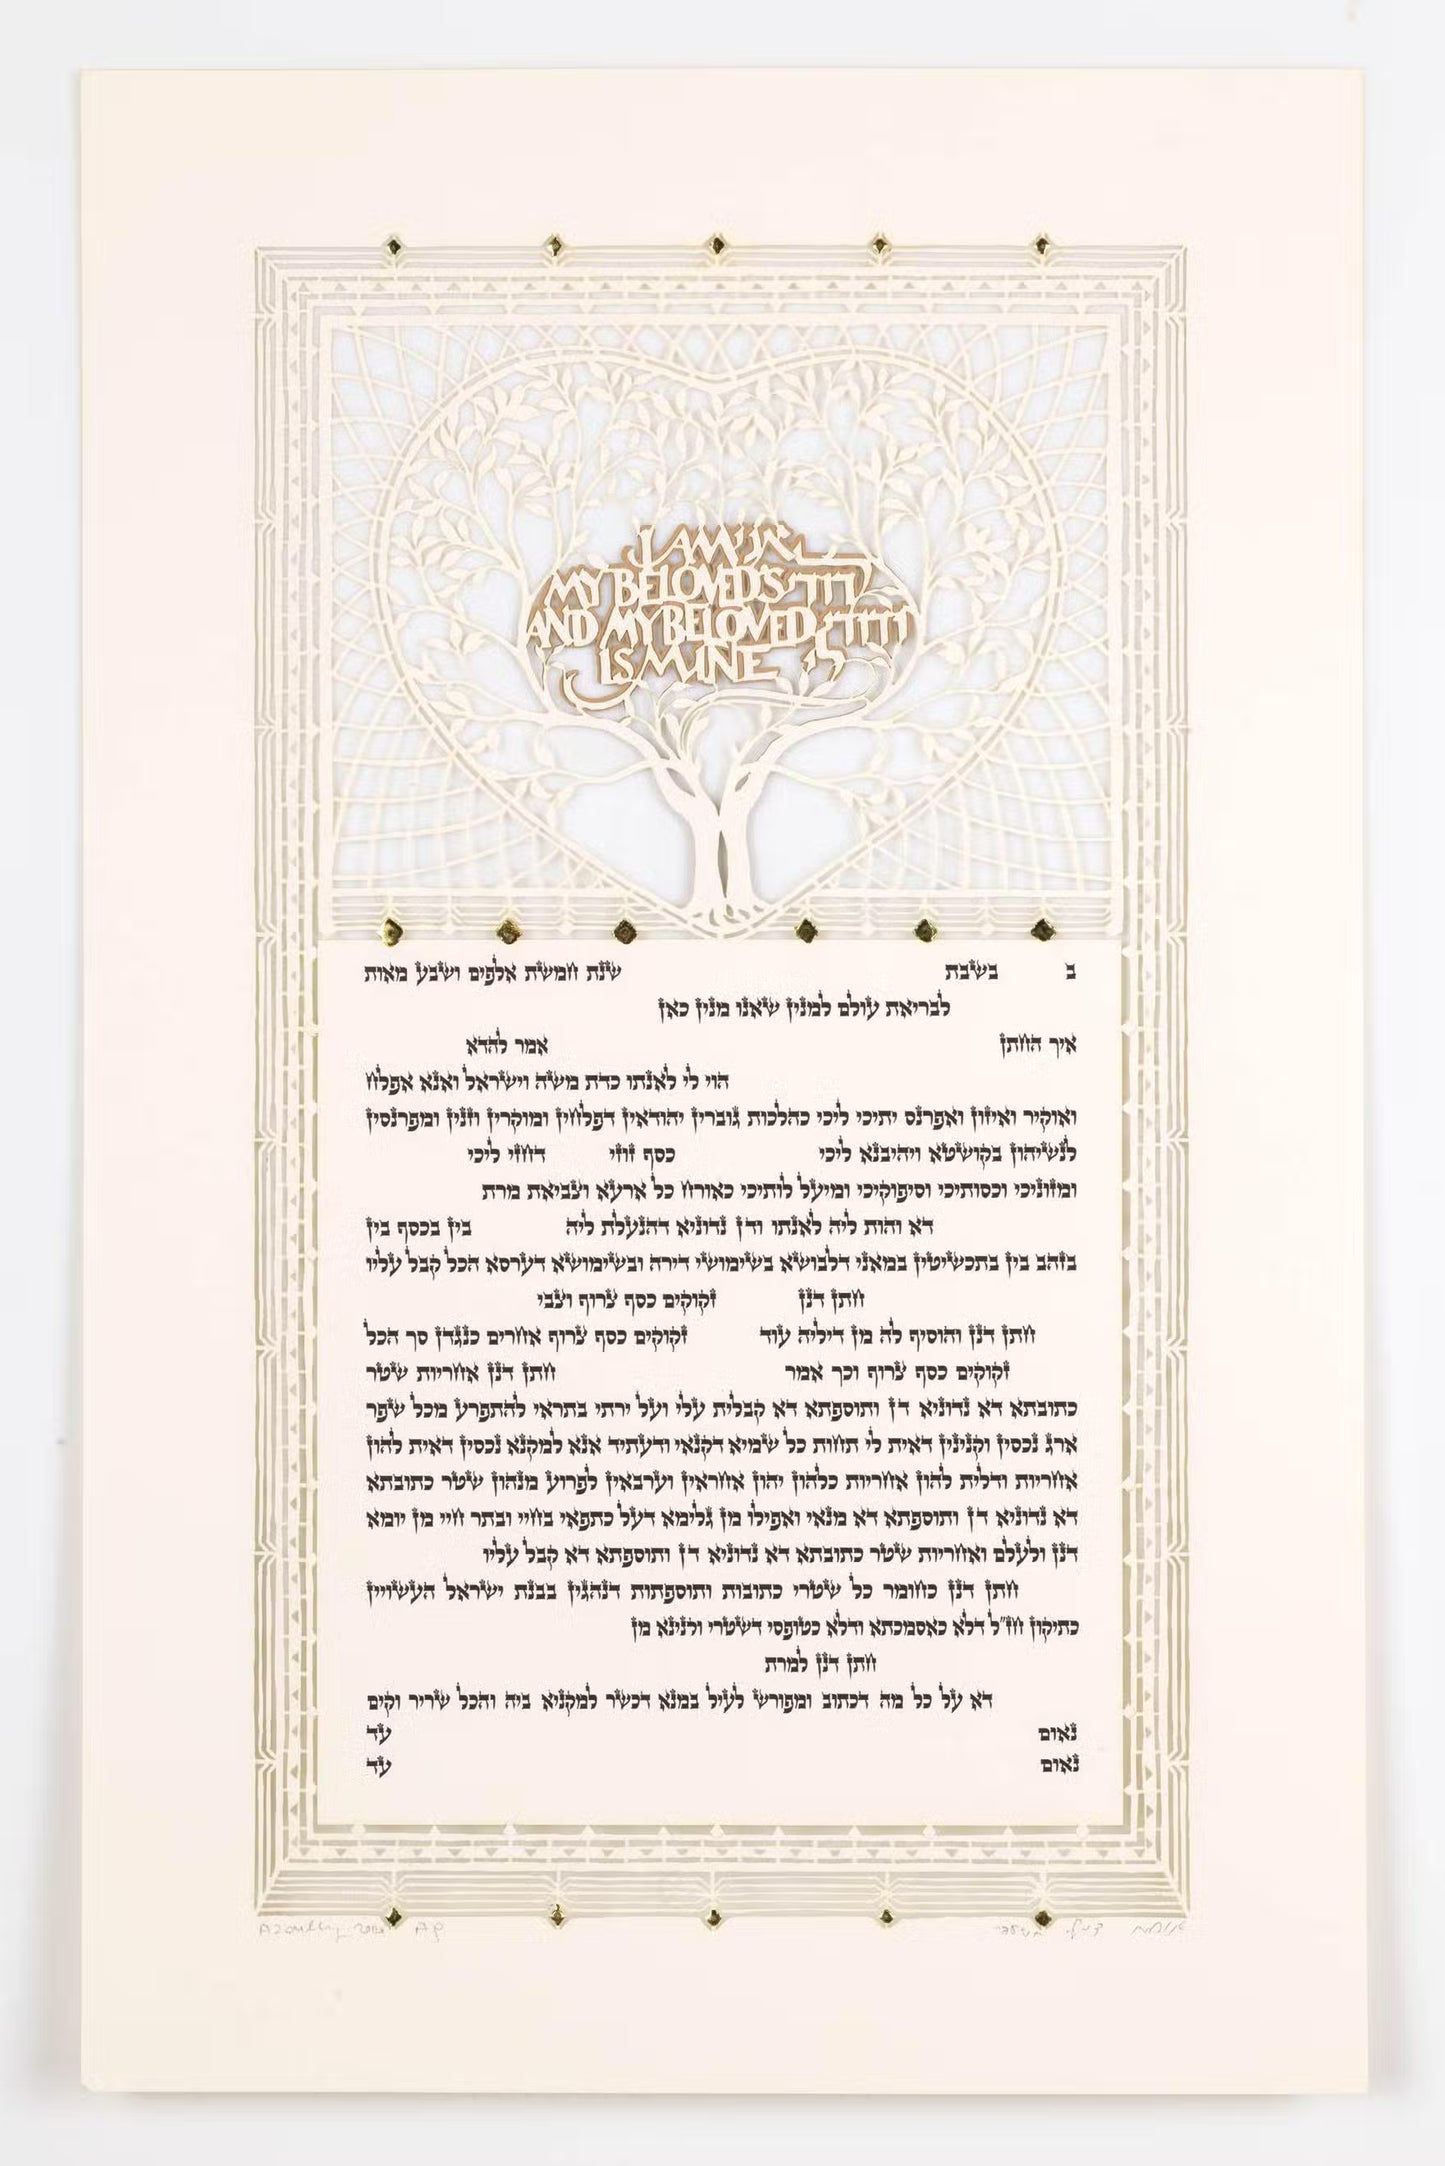 I AM אני
MY BELOVED'S לדודי
AND MY BELOVED ודודי
IS MINE לי
ב בשבת שנת חמשת אלפים ושבע מאות
לבריאת עולם למנין שאנו מנין כאן
איך החתן אמר להדא
הוי לי לאנתו כדת משה וישראל ואנא אפלח
ואוקיר ואיזון ואפרנס יתיכי ליכי כהלכות גוברין יהודאין דפלחין ומוקרין וזנין ומפרנסין
לנשיהון בקושטא ויהיבנא ליכי כסף זוזי דחזי ליכי
ומזוניכי וכסותיכי וסיפוקיכי ומיעל לותיכי כאורח כל ארעא וצביאת מרת
דא והות ליה לאנתו ודן נדוניא דהנעלת ליה בין בכסף בין
בזהב בין בתכשיטין במאני דלבושא בשימושי דירה ובשימושא דערסא הכל קבל עליו
חתן דנן זקוקים כסף צרוף וצבי
חתן דנן והוסיף לה מן דיליה עוד זקוקים כסף צרוף אחרים כנגדן סך הכל
זקוקים כסף צרוף וכך אמר חתן דנן אחריות שטר
כתובתא דא נדוניא דן ותוספתא דא קבלית עלי ועל ירתי בתראי להתפרע מכל שפר
ארג נכסין וקנינין דאית לי תחות כל שמיא דקנאי ודעתיד אנא למקנא נכסין דאית להון
אחריות ודלית להון אחריות כלהון יהון אחראין וערבאין לפרוע מנהון שטר כתובתא
דא נדוניא דן ותוספתא דא מנאי ואפילו מן גלימא דעל כתפאי בחיי ובתר חיי מן יומא
דנן ולעלם ואחריות שטר כתובתא דא נדוניא דן ותוספתא דא קבל עליו
חתן דנן כחומר כל שטרי כתובות ותוספתות דנהגין בבנת ישראל העשויין
כתיקון חז"ל דלא כאסמכתא ודלא כטופסי דשטרי וקנינא מן
חתן דנן למרת
דא על כל מה דכתוב ומפורש לעיל במנא דכשר למקניא ביה והכל שריר וקים
נאום עד
נאום עד
Azoulay AP